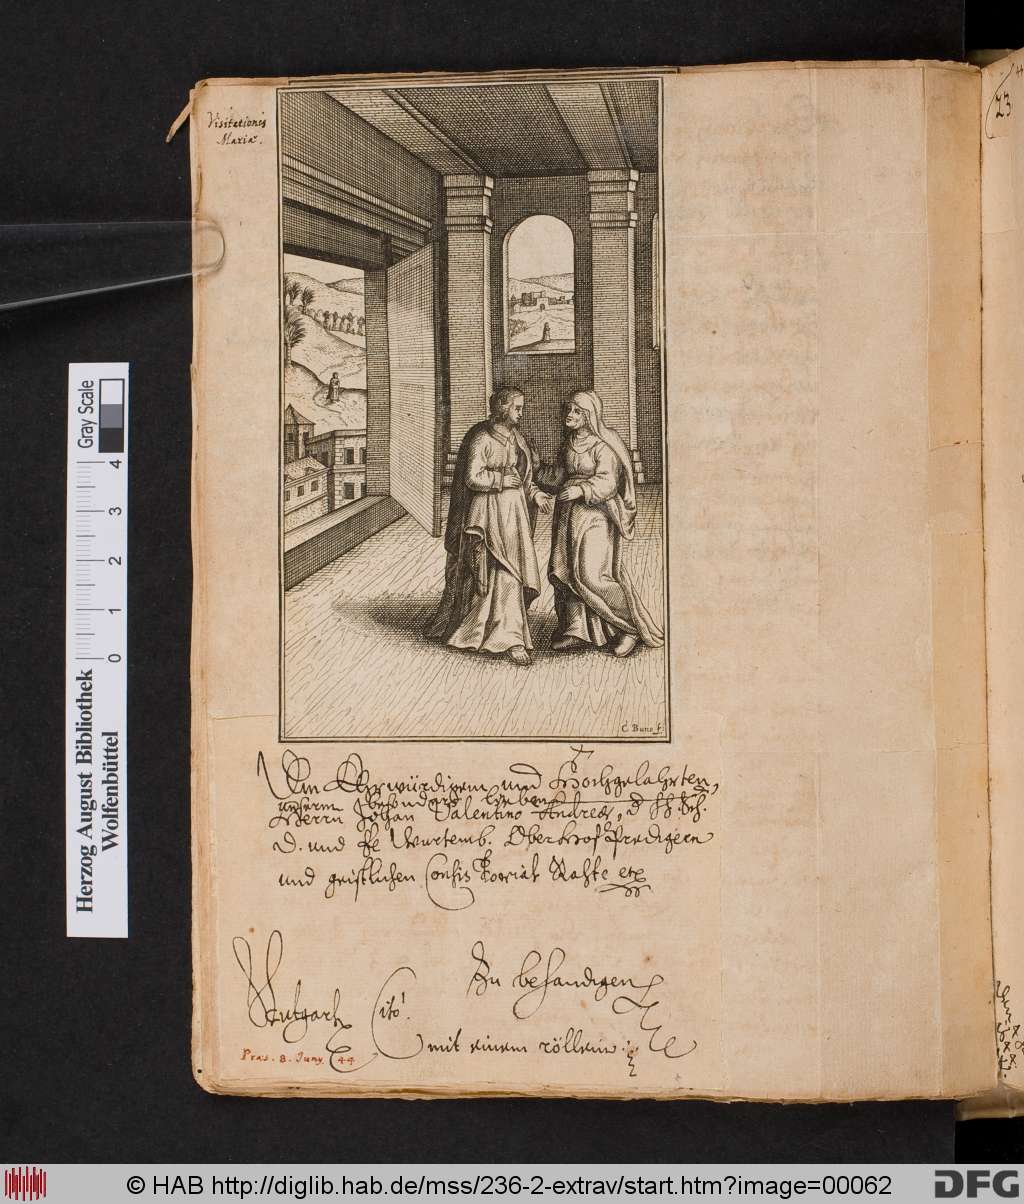 Visitationis
Mariæ.
23
Gray Scale
4
3
2
1
0
Herzog August Bibliothek
Wolfenbüttel
C Buno f.
Dem Ehrwürdigem und Hochgelahrten,
unserm besonders lieben
Herrn Johan Valentino Andreæ, d H. Sch.
D. und Wurtemb. OberHofPredigern
und geistlichen Consistorial Rahte etc
Zu behändigen
Stutgart Cito!
mit einem röllein.
Præs. 8. Juny 44
© HAB http://diglib.hab.de/mss/236-2-extrav/start.htm?image=00062
DFG